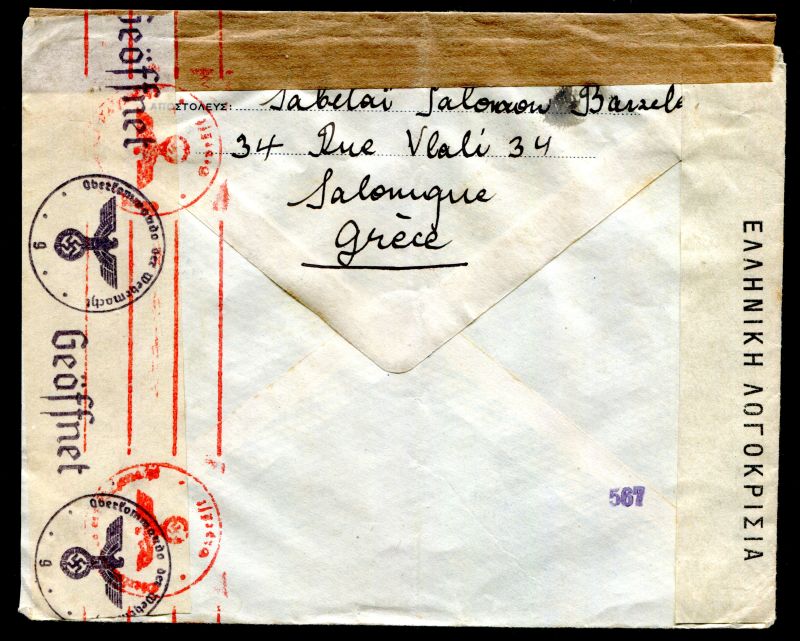 Geöffnet
ΑΠΟΣΤΟΛΕΥΣ: Sabetaï Salomon
34 Rue Vlali 34
Salonique
Grèce
Oberkommando der Wehrmacht
g
Geöffnet
Oberkommando der Wehrm
g
567
ΕΛΛΗΝΙΚΗ ΛΟΓΟΚΡΙΣΙΑ